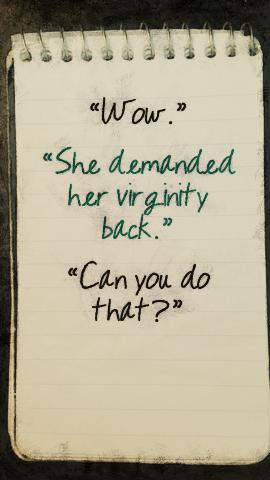 “Wow.”
“She demanded
her virginity
back.”
“Can you do
that?”